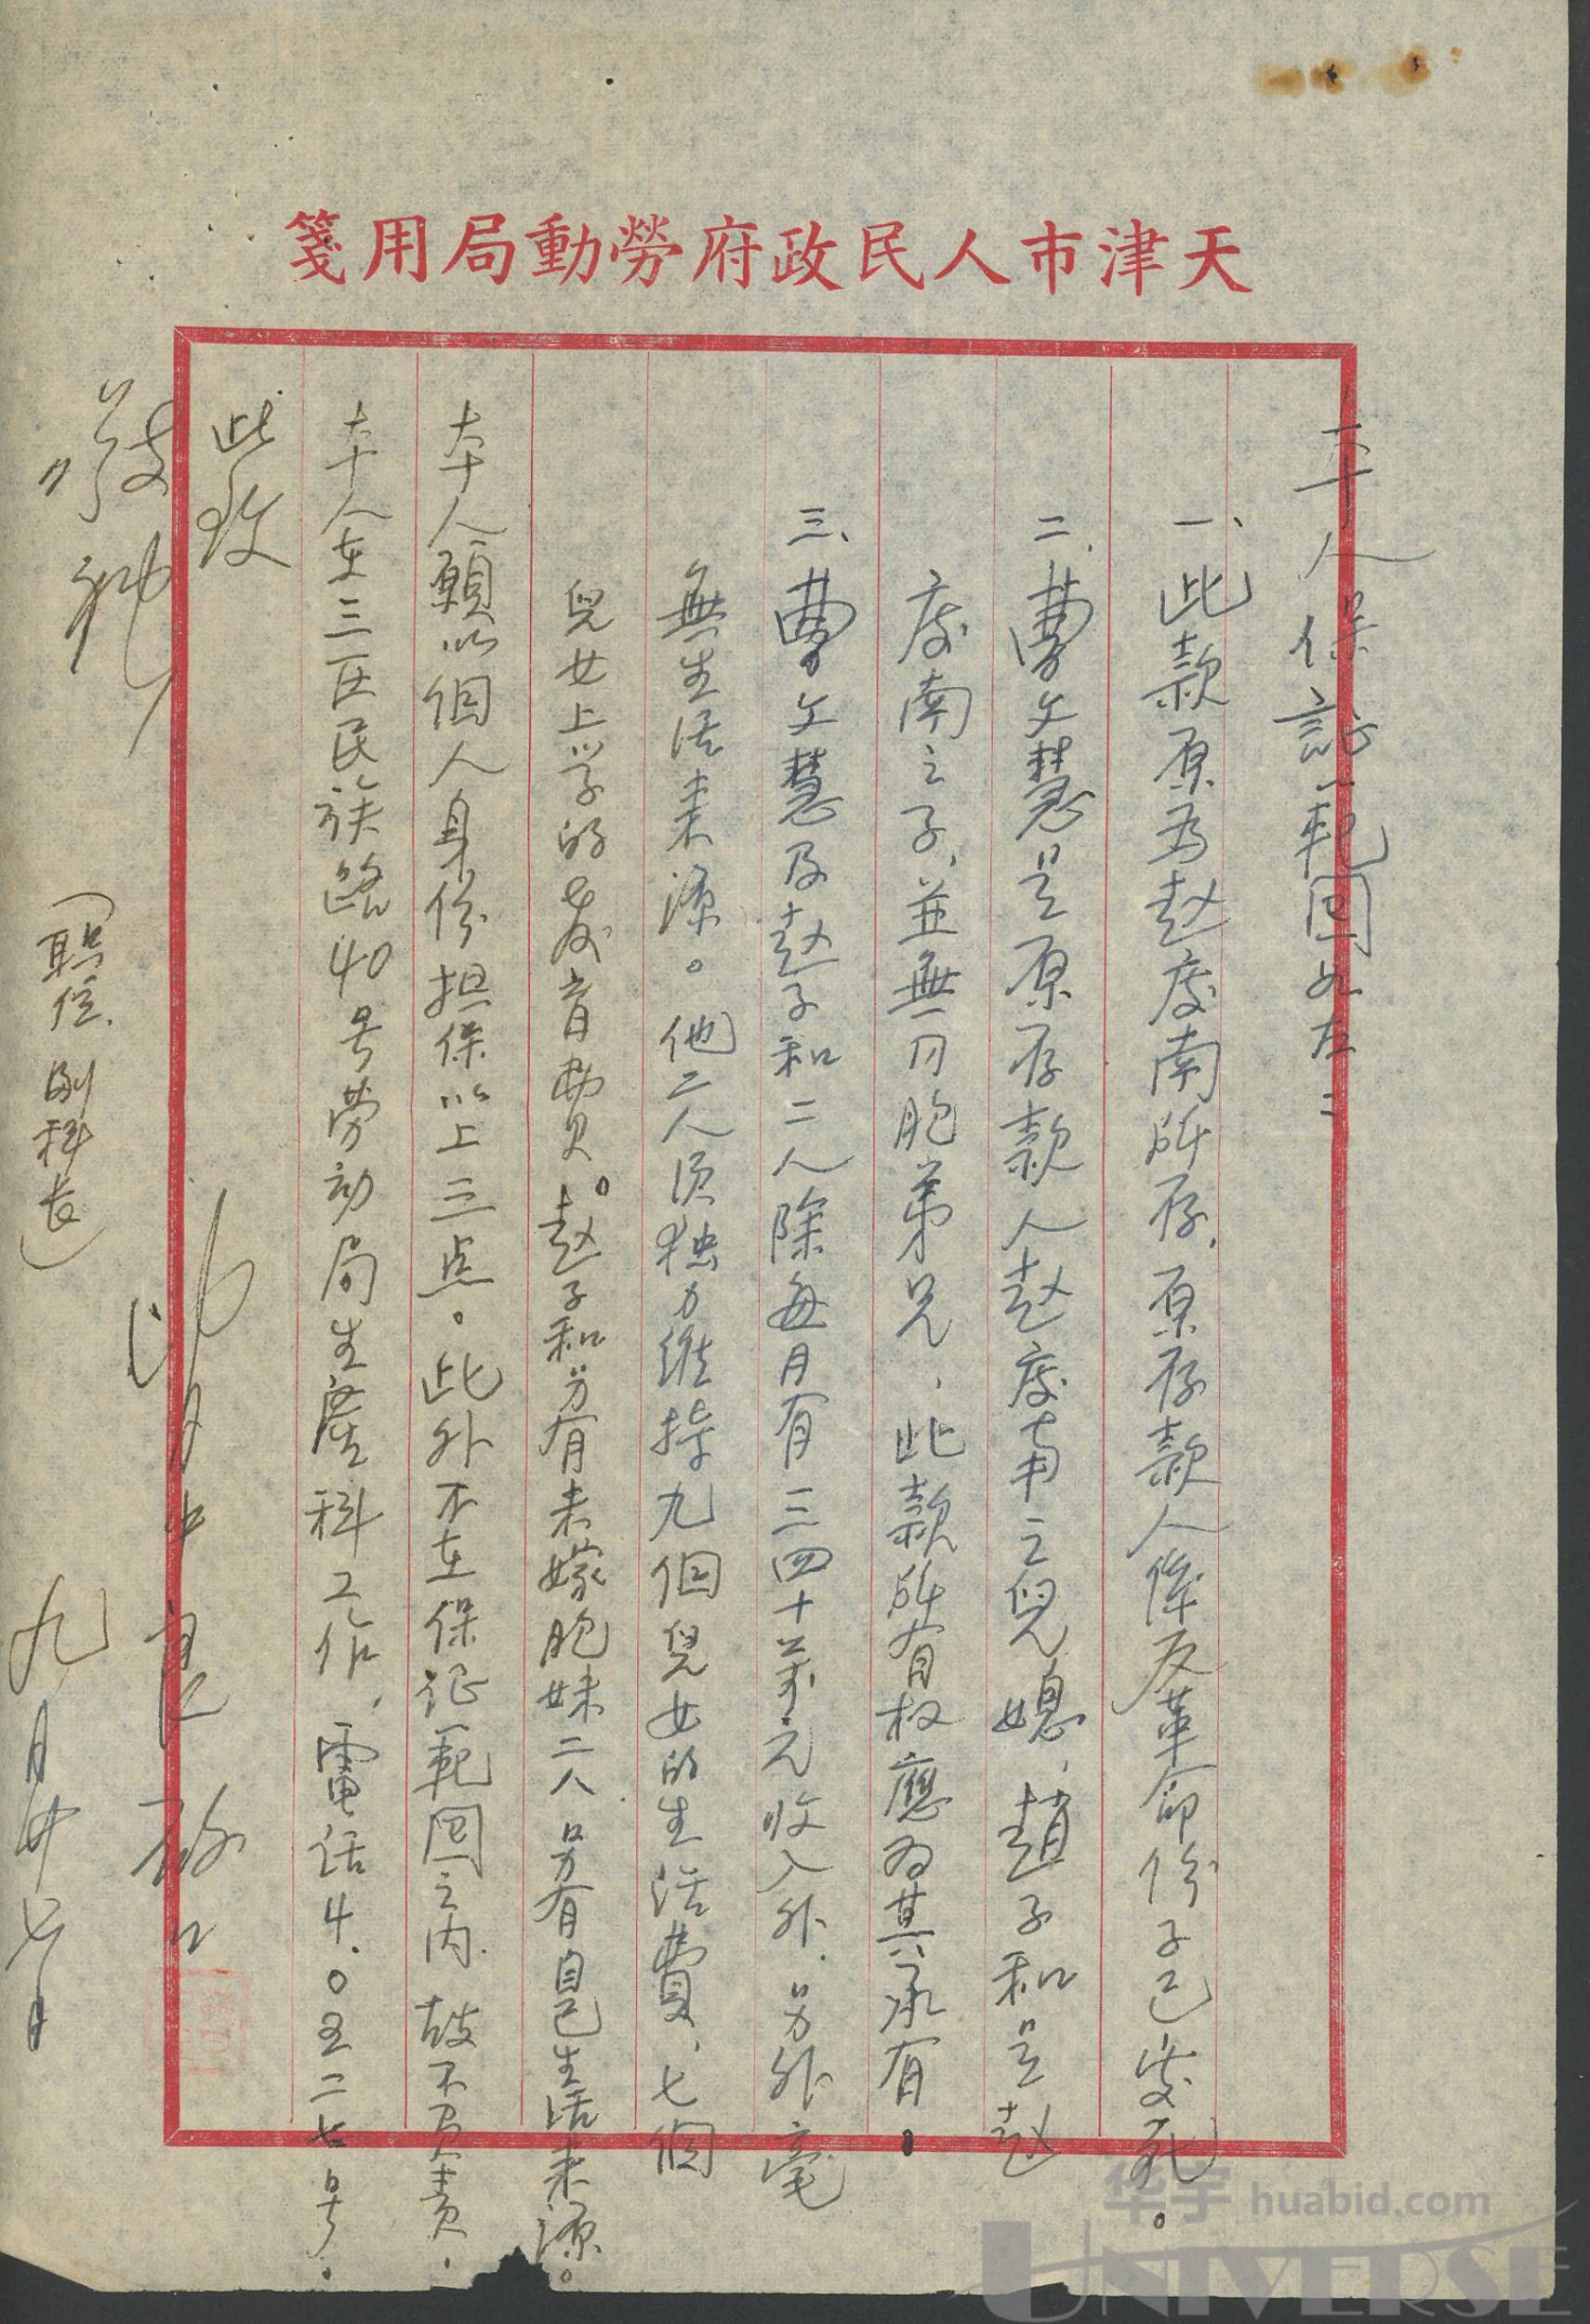 天津市人民政府勞動局用箋
本人保証範囲如左：
一、此款原為赵慶南所存，原存款人係反革命份子已處死。
二、曹文慧是原存款人赵慶南之兒媳，趙子和是赵
慶南之子，並無同胞弟兄，此款所有权應为其承有。
三、曹文慧及赵子和二人除每月有三四十萬元收入外，另外毫
無生活来源。他二人须独力維持九個兒女的生活費，七個
兒女上学的教育費。赵子和另有未嫁胞妹二人另有自己生活来源。
本人願以個人身份担保以上三点。此外不在保证範囲之内 故不負責.
本人在三区民族路40号劳动局生產科工作，電话4.0五二七号.
此致
敬礼
(職位.副科长)
九月廿七日
华宇 huabid.com
UNIVERSE